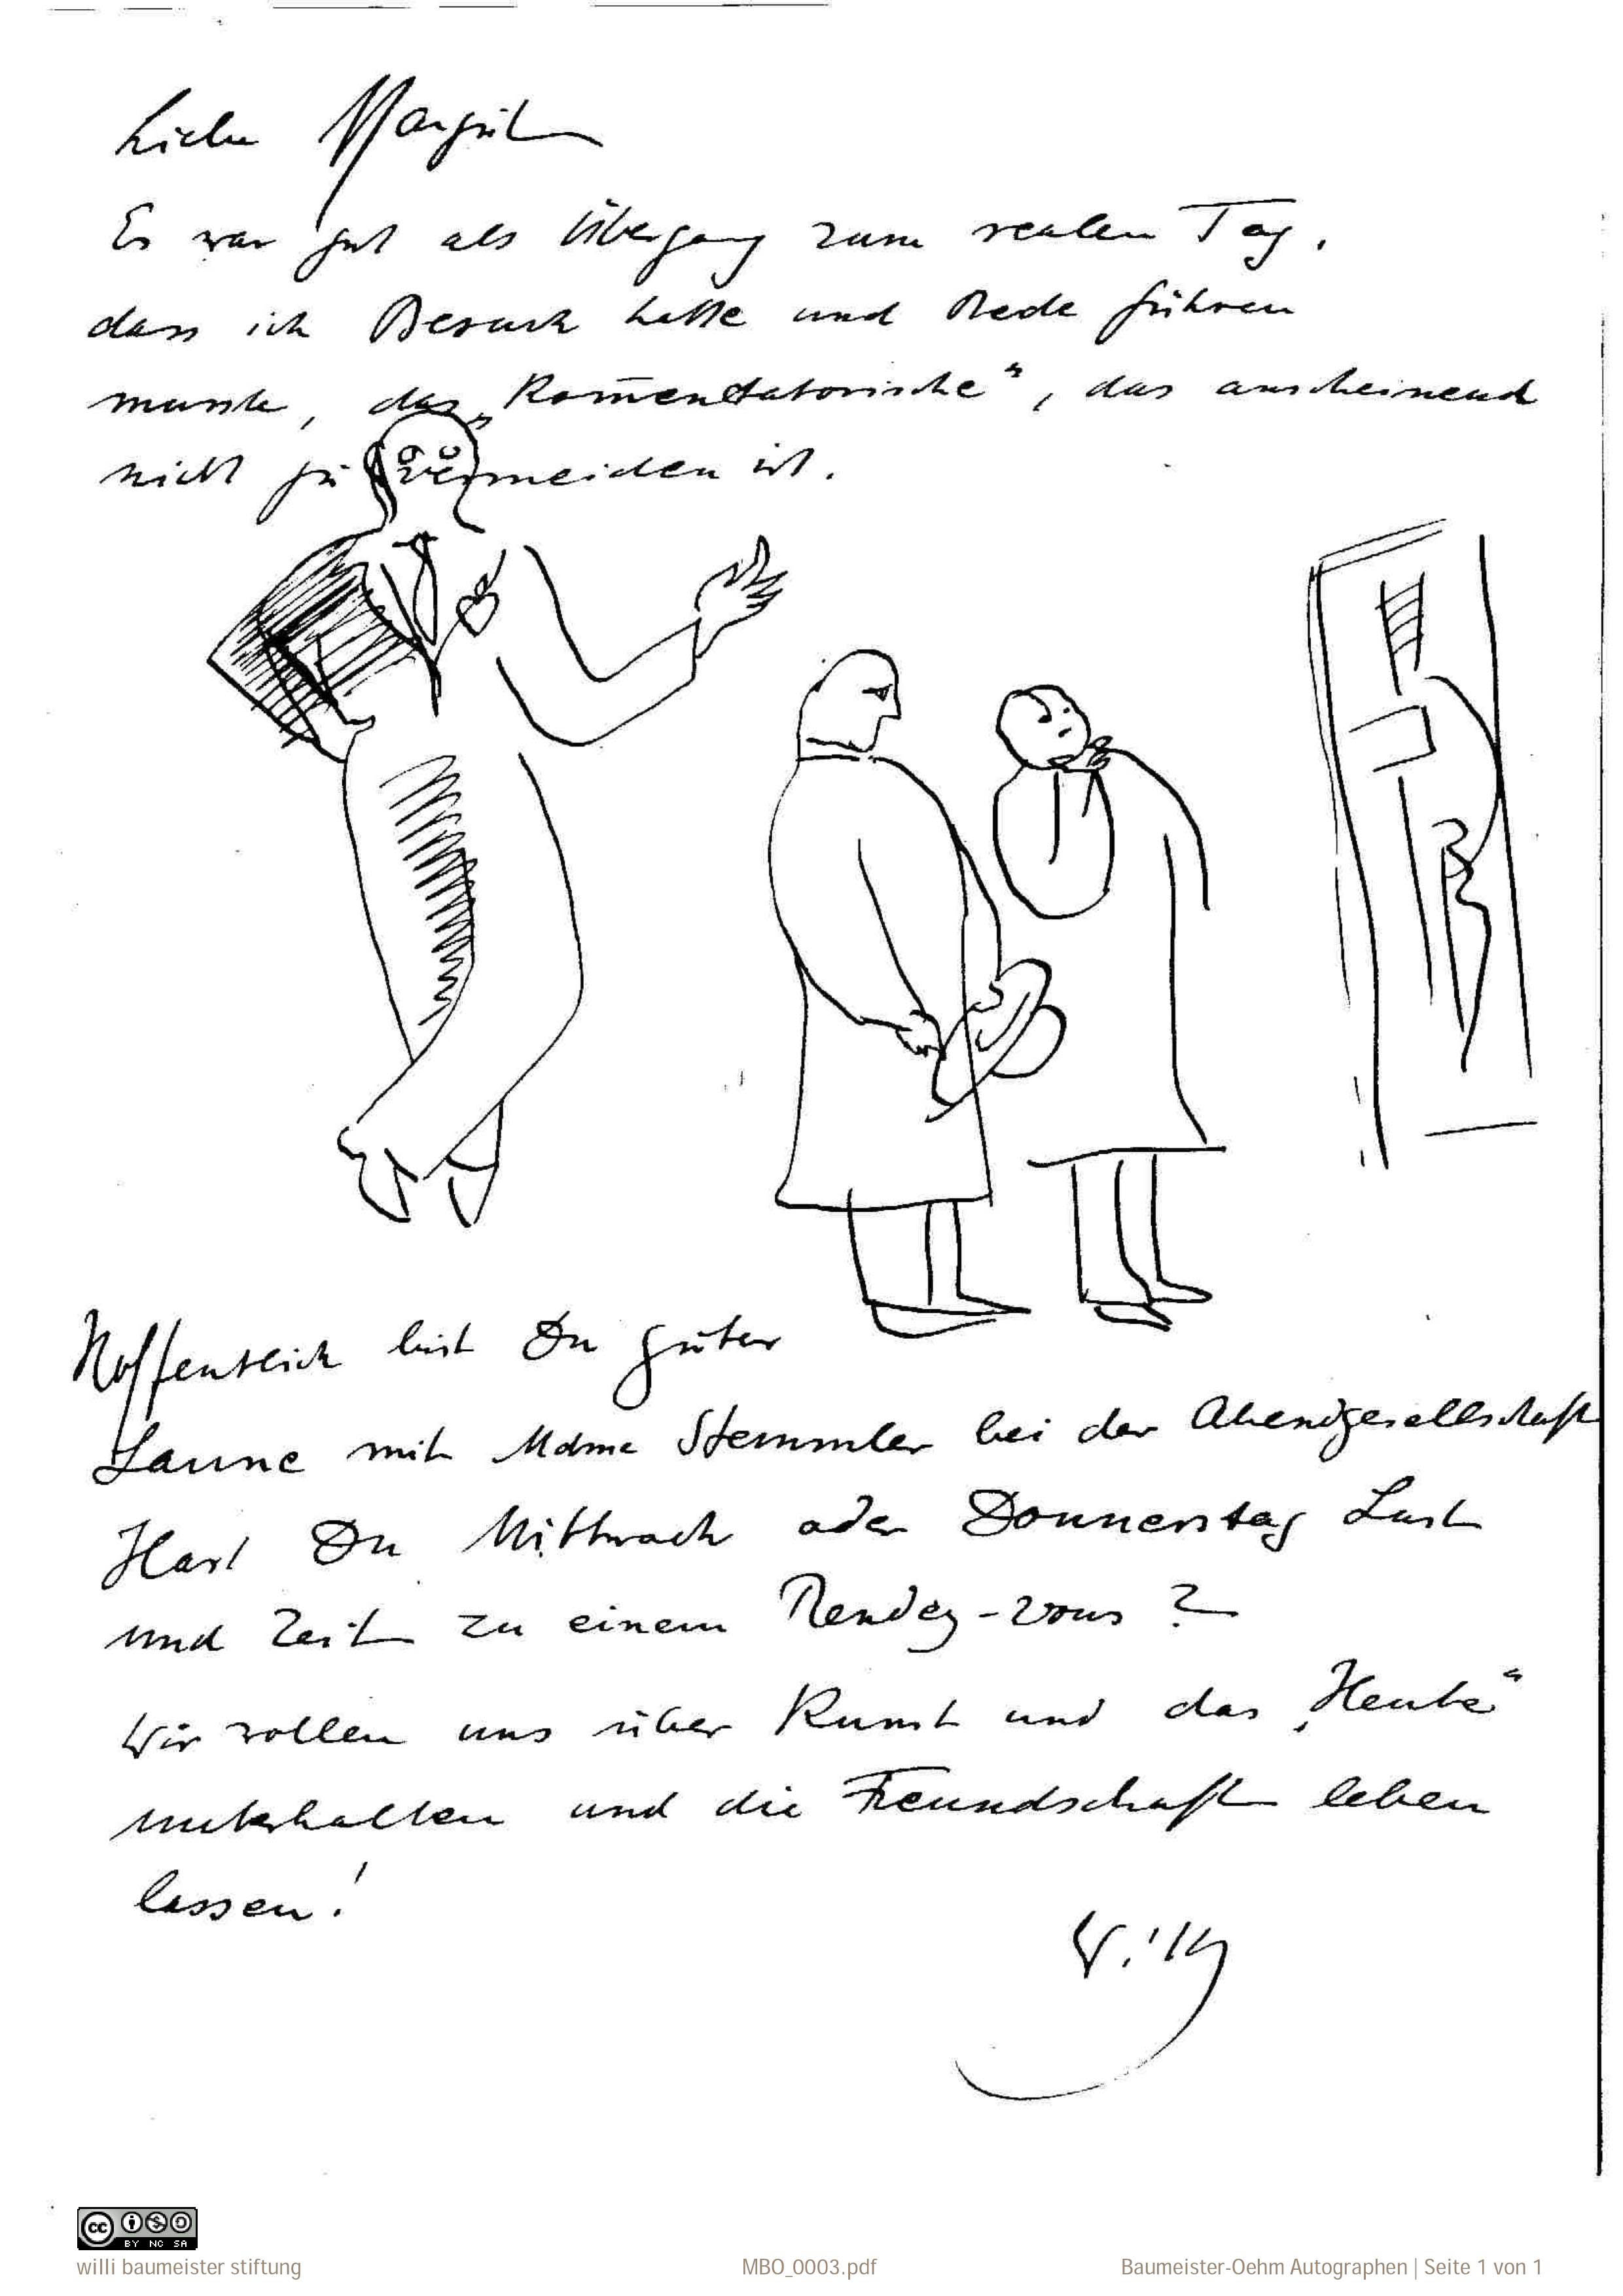 Liebe Margrit
Es war gut als Übergang zum realen Tag,
dass ich Besuch hatte und Rede führen
musste, das „Kom̄entatorische“, das anscheinend
nicht zu vermeiden ist.
Hoffentlich bist Du guter
Laune mit Mdme Stemmler bei der Abendgesellschaft
Hast Du Mittwoch oder Donnerstag Lust
und Zeit zu einem Rendez-vous?
Wir wollen uns über Kunst und das „Heute“
unterhalten und die Freundschaft leben
lassen!
Willy
CC BY NC SA
willi baumeister stiftung
MBO_0003.pdf
Baumeister-Oehm Autographen | Seite 1 von 1